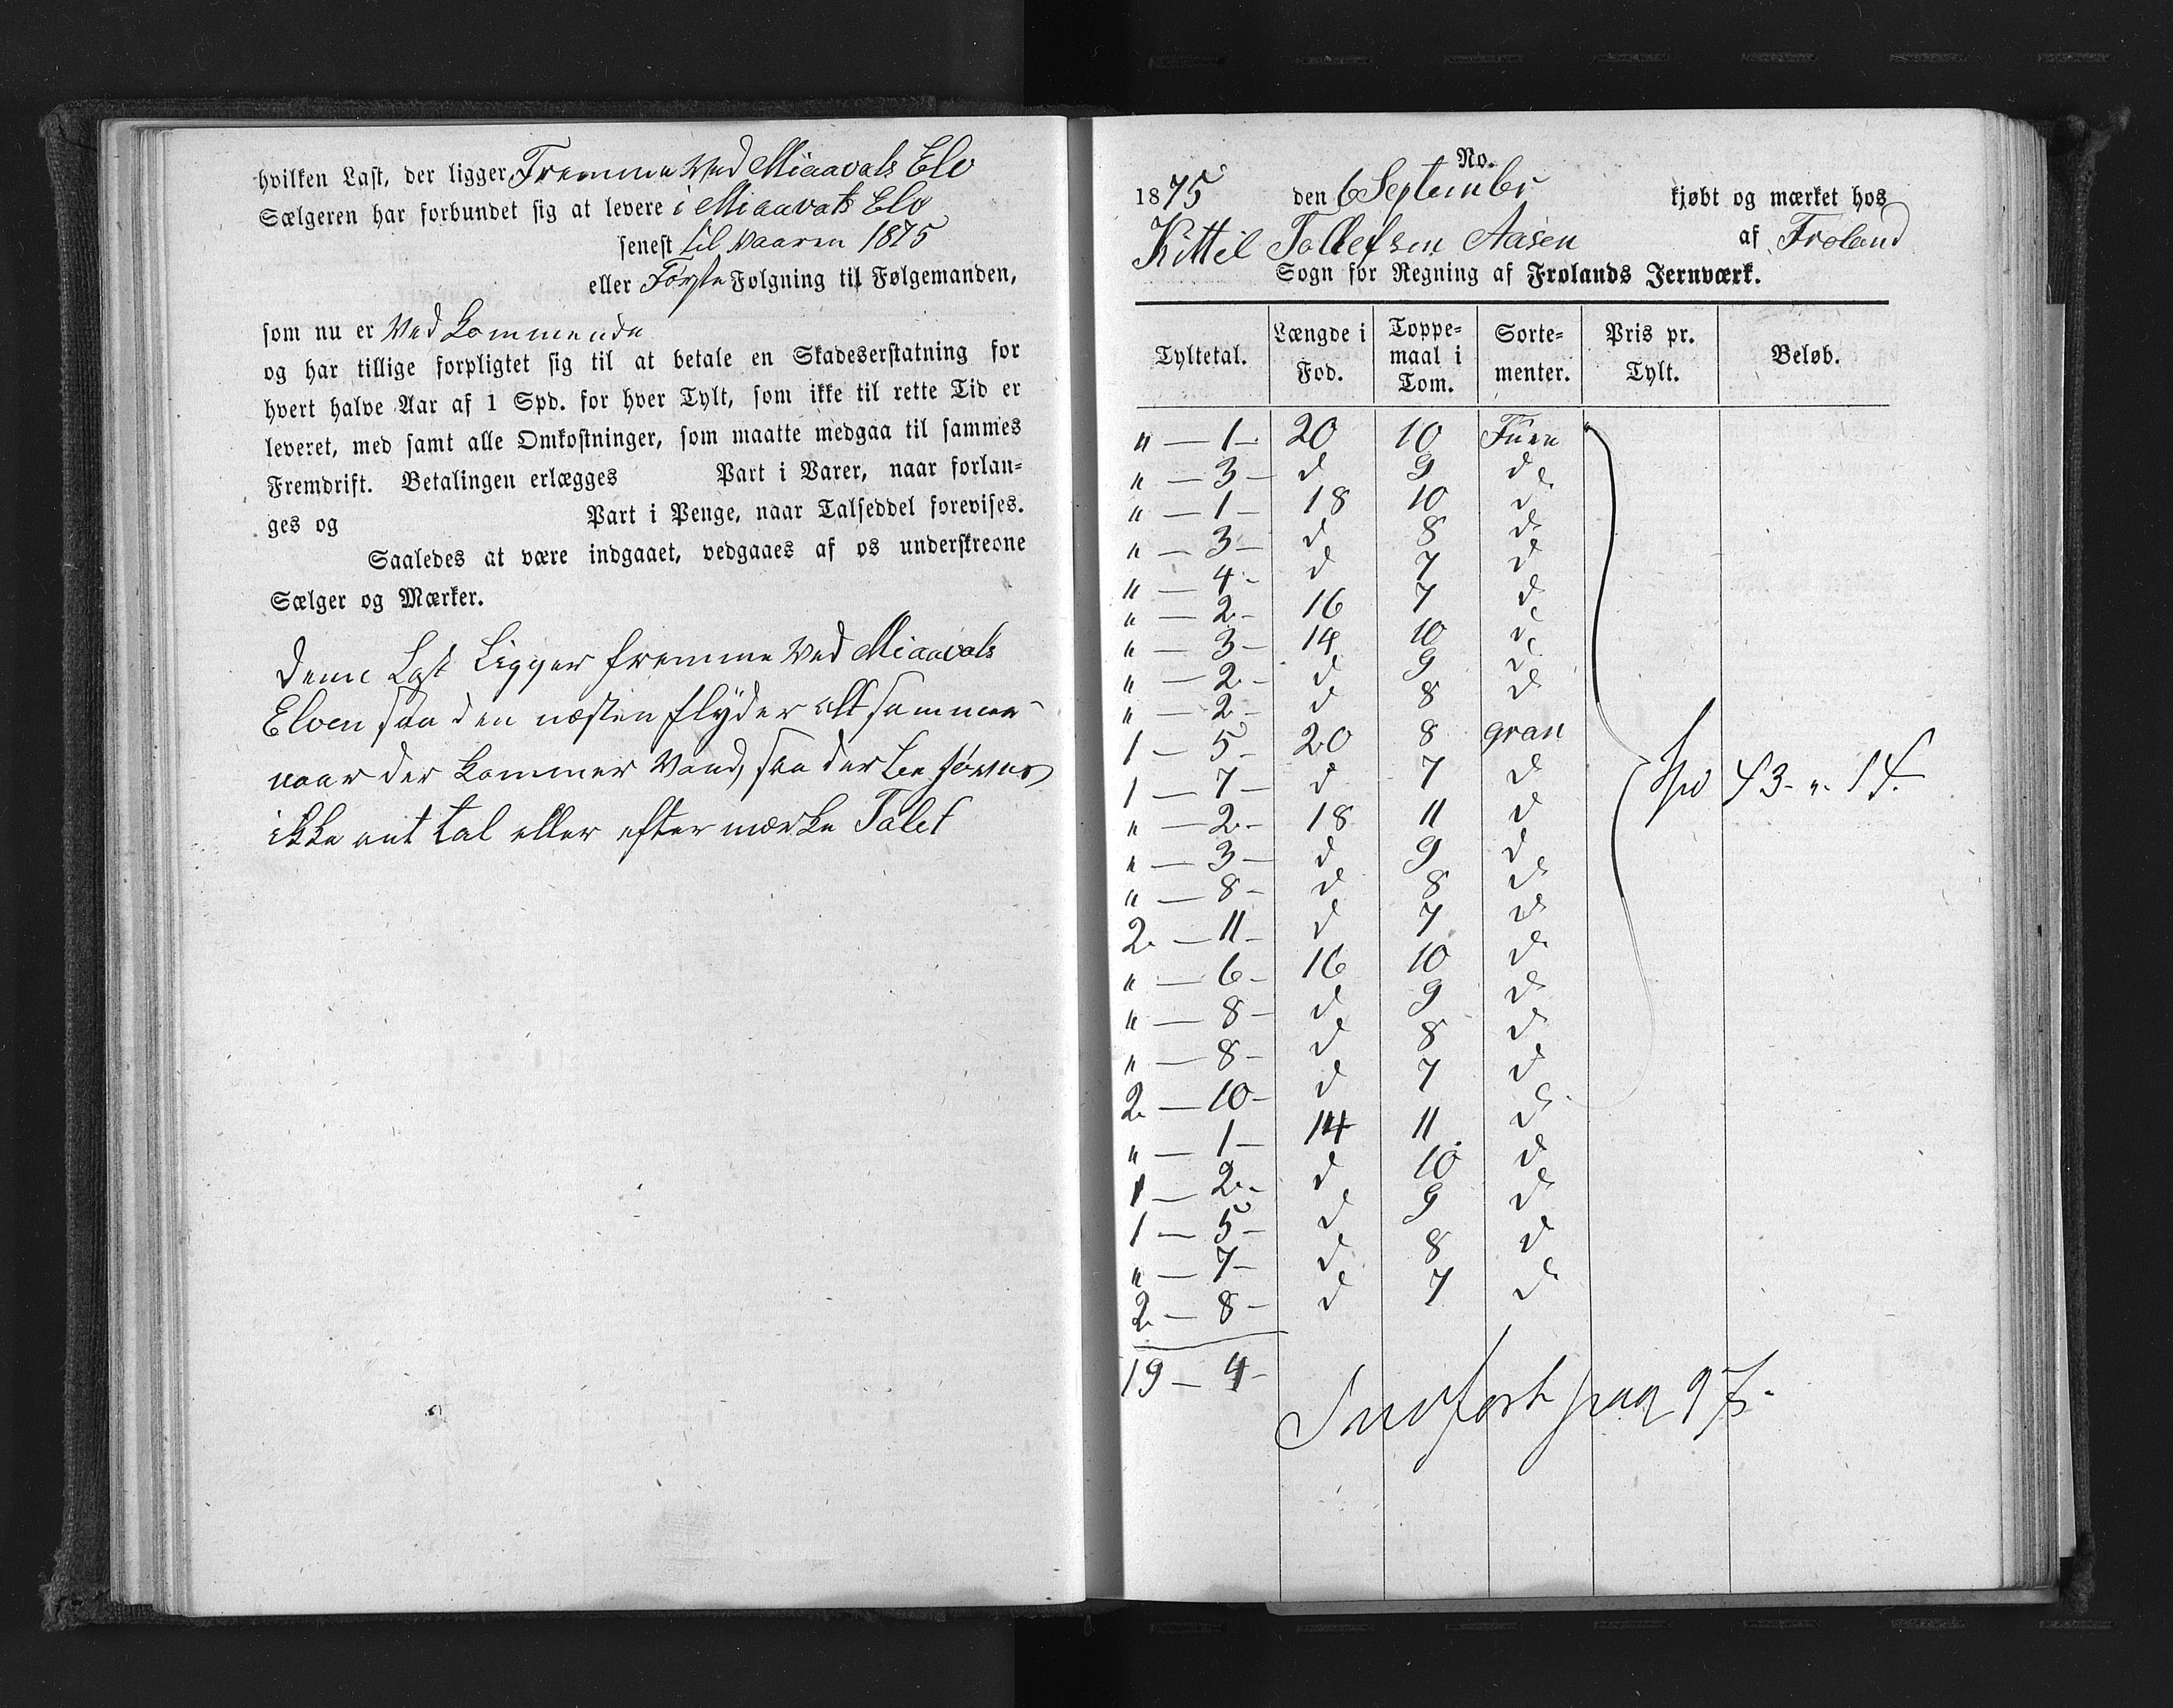 hvilken Last, der ligger Fremme Ved Miaavats Elv
Sælgeren har forbundet sig at levere i Miaavats Elv
senest til Vaaren 1875
eller Første Følgning til Følgemanden,
som nu er Ved Kommende
og har tillige forpligtet sig til at betale en Skadeserstatning for
hvert halve Aar af 1 Spd. for hver Tylt, som ikke til rette Tid er
leveret, med samt alle Omkostninger, som maatte medgaa til sammes
Fremdrift. Betalingen erlægges Part i Varer, naar forlan=
ges og Part i Penge, naar Talseddel forevises.
Saaledes at være indgaaet, vedgaaes af os underskrevne
Sælger og Mærker.
Denne Last Ligger fremme Ved Miaavats
Elven saa den næsten flyder alt sammen
naar der Kommer Vand, saa der
ikke ent tal eller efter mærke Talet
No.
1875 den 6 September kjøbt og mærket hos
Kittil Tollefsen Aasen af Froland
Sogn for Regning af Frolands Jernværk.
Tyltetal. Længde i Fod. Toppe=maal i Tom. Sorte=menter. Pris pr. Tylt. Beløb.
" — 1 — 20 10 Furu
" — 3 — d 9 do
" — 1 — 18 10 d
" — 3 — d 8 d
" — 4 — d 7 d
" — 2 — 16 7 d
" — 3 — 14 10 d
" — 2 — d 9 d
" — 2 — d 8 d
1 — 5 — 20 8 gran
1 — 7 — d 7 d
Spd 43 - " - 14
" — 2 — 18 11 d
" — 3 — d 9 d
" — 8 — d 8 d
2 — 11 — d 7 d
" — 6 — 16 10 d
" — 8 — d 9 d
" — 8 — d 8 d
2 — 10 — d 7 d
" — 1 — 14 11 d
1 — 2 — d 10 d
1 — 5 — d 9 d
" — 7 — d 8 d
2 — 8 — d 7 d
19 — 4 —
Indført pag 97